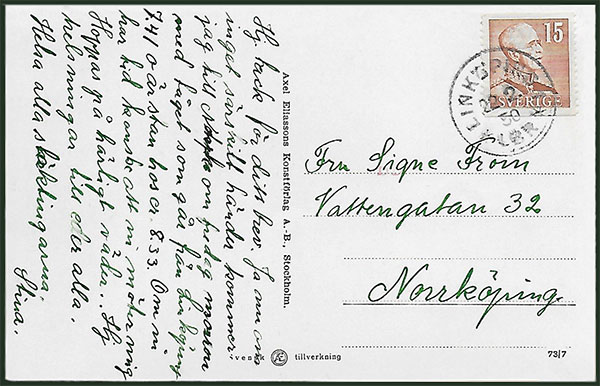 Hj. tack för ditt brev. Ja om om
inget särskilt händer kommer
jag till om tisdag morron
med tåget som går från Linköping
7.41 o är stan hos er 8.33. Om ni
har tid kanske att ni möter mig
Hoppas på härligt väder. Hj
hälsningar till eder alla.
Hälsa alla släktingarna.
Stina.
Axel Eliassons Konstförlag A.-B., Stockholm.
15
SVERIGE
LINKÖPING
Fru Signe From
Vattengatan 32
Norrköping
Svensk tillverkning
73/7